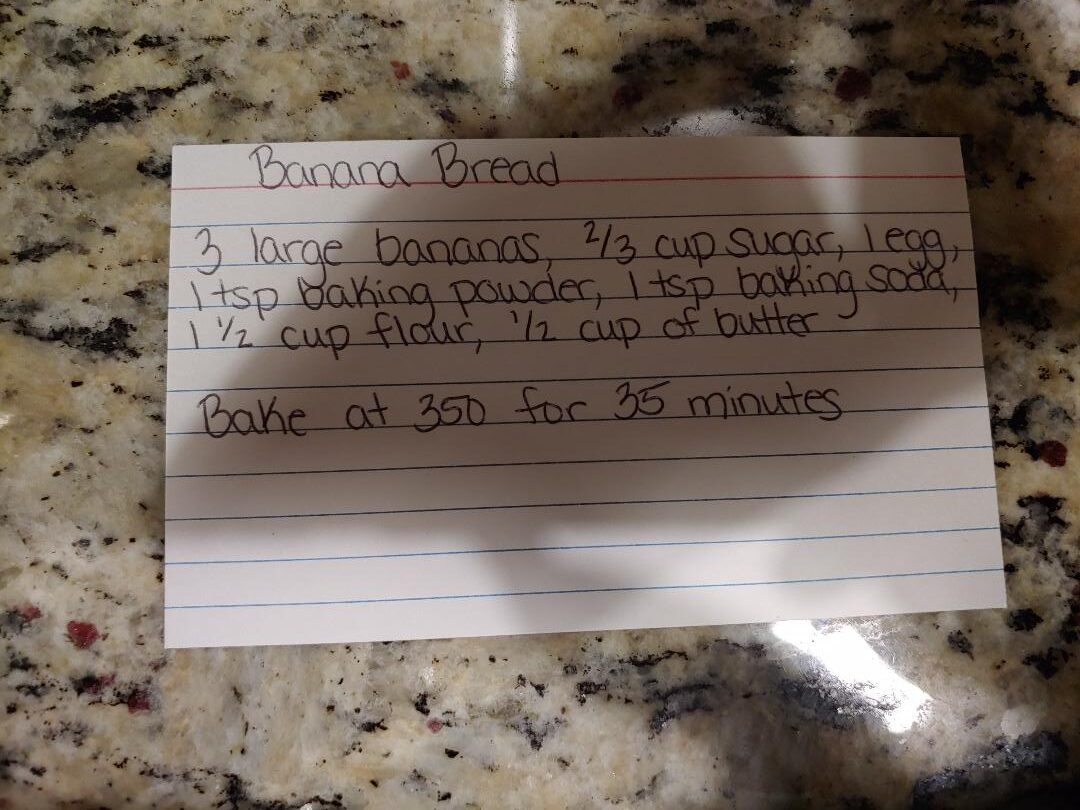 Banana Bread
3 large bananas, 2/3 cup sugar, 1 egg,
1 tsp baking powder, 1 tsp baking soda,
1 1/2 cup flour, 1/2 cup of butter
Bake at 350 for 35 minutes